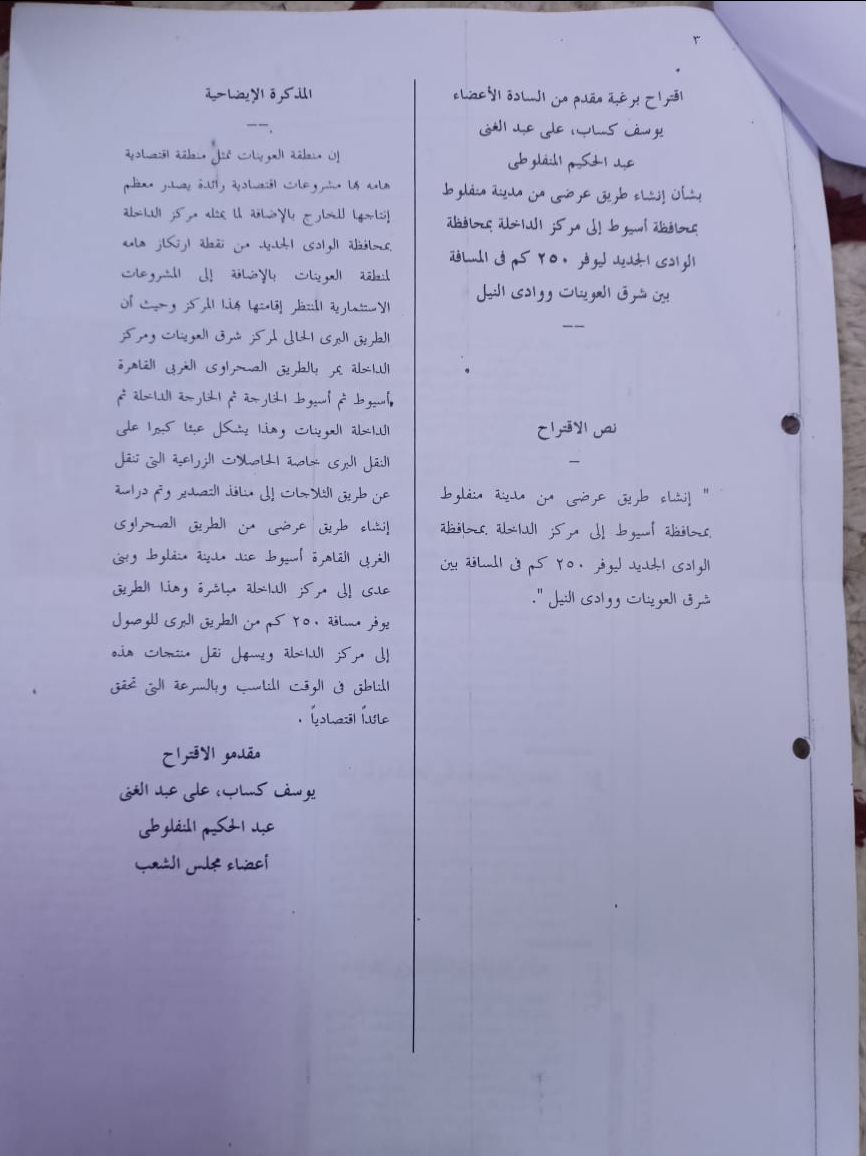 ٣
اقتراح برغبة مقدم من السادة الأعضاء
يوسف كساب، على عبد الغنى
عبد الحكيم المنفلوطى
بشأن إنشاء طريق عرضى من مدينة منفلوط
بمحافظة أسيوط إلى مركز الداخلة بمحافظة
الوادى الجديد ليوفر ٢٥٠ كم فى المسافة
بين شرق العوينات ووادى النيل
نص الاقتراح
" إنشاء طريق عرضى من مدينة منفلوط
بمحافظة أسيوط إلى مركز الداخلة بمحافظة
الوادى الجديد ليوفر ٢٥٠ كم فى المسافة بين
شرق العوينات ووادى النيل ".
المذكرة الإيضاحية
إن منطقة العوينات تمثل منطقة اقتصادية
هامه بها مشروعات اقتصادية رائدة يصدر معظم
إنتاجها للخارج بالإضافة لما يمثله مركز الداخلة
بمحافظة الوادى الجديد من نقطة ارتكاز هامه
لمنطقة العوينات بالإضافة إلى المشروعات
الاستثمارية المنتظر إقامتها بهذا المركز وحيث أن
الطريق البرى الحالى لمركز شرق العوينات ومركز
الداخلة يمر بالطريق الصحراوى الغربى القاهرة
أسيوط ثم أسيوط الخارجة ثم الخارجة الداخلة ثم
الداخلة العوينات وهذا يشكل عبئا كبيرا على
النقل البرى خاصة الحاصلات الزراعية التى تنقل
عن طريق الثلاجات إلى منافذ التصدير وتم دراسة
إنشاء طريق عرضى من الطريق الصحراوى
الغربى القاهرة أسيوط عند مدينة منفلوط وبنى
عدى إلى مركز الداخلة مباشرة وهذا الطريق
يوفر مسافة ٢٥٠ كم من الطريق البرى للوصول
إلى مركز الداخلة ويسهل نقل منتجات هذه
المناطق فى الوقت المناسب وبالسرعة التى تحقق
عائداً اقتصادياً .
مقدمو الاقتراح
يوسف كساب، على عبد الغنى
عبد الحكيم المنفلوطى
أعضاء مجلس الشعب